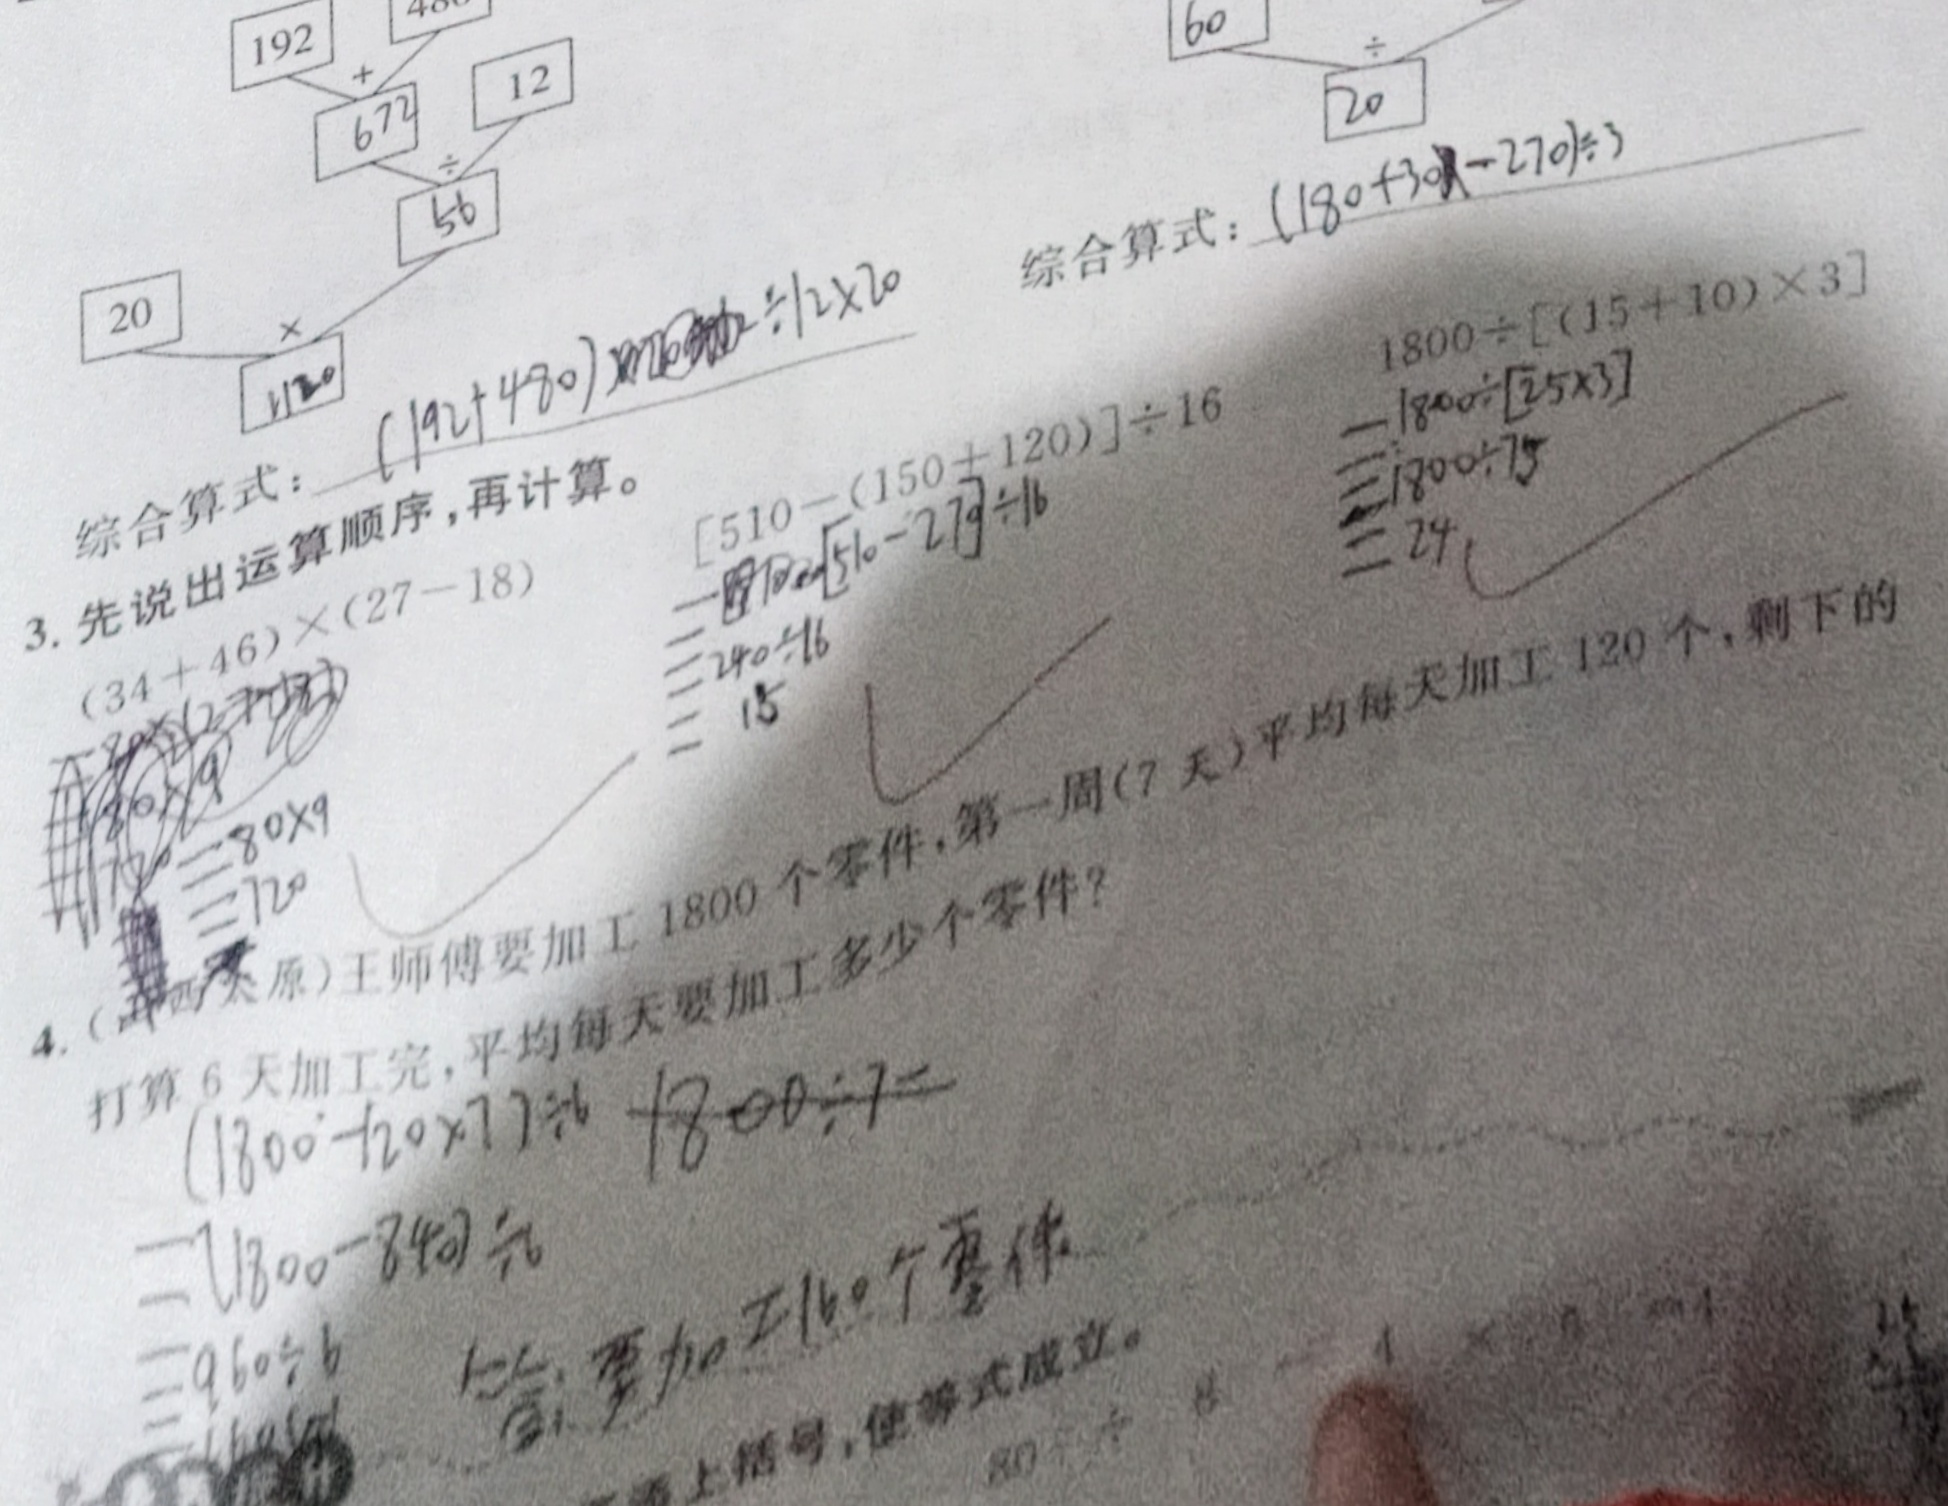 192
+
672
12
÷
56
20
×
1120
60
÷
20
综合算式：(192+480) ÷12×20
综合算式：(180+30 -270)÷3
3. 先说出运算顺序，再计算。
(34+46)×(27-18)
=80×9
=720
[510-(150+120)]÷16
= [510-270]÷16
=240÷16
= 15
1800÷[(15+10)×3]
=1800÷[25×3]
=1800÷75
=24
4. (山西太原)王师傅要加工 1800 个零件，第一周(7 天)平均每天加工 120 个，剩下的
打算 6 天加工完，平均每天要加工多少个零件？
(1800-120×7)÷6 1800÷7=
=(1800-840)÷6
=960÷6
答：要加工160个零件
上括号，使等式成立。
80 ÷ 8